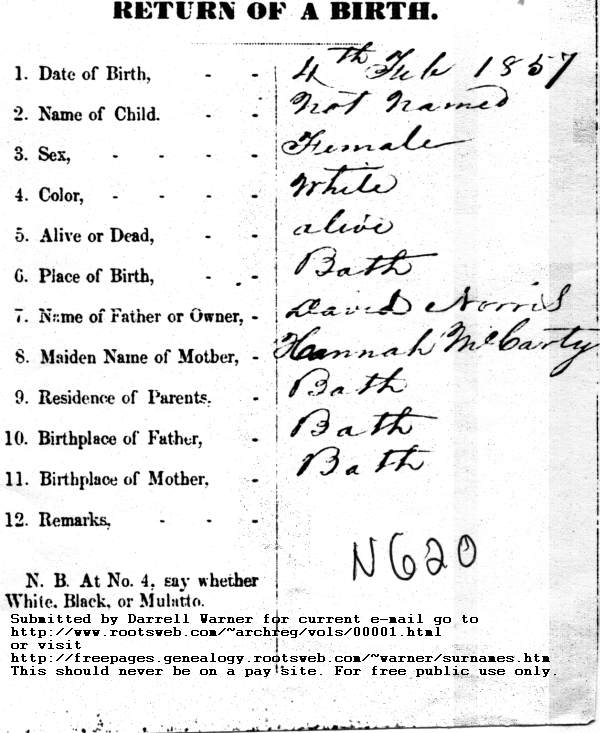 RETURN OF A BIRTH.
1. Date of Birth, - - 4th Feb 1857
2. Name of Child. - - Not Named
3. Sex, - - - - Female
4. Color, - - - - White
5. Alive or Dead, - - alive
6. Place of Birth, - - Bath
7. Name of Father or Owner, - David Norris
8. Maiden Name of Mother, - Hannah McCarty
9. Residence of Parents. - Bath
10. Birthplace of Father, - Bath
11. Birthplace of Mother. - Bath
12. Remarks, - - -
N620
N. B. At No. 4, say whether
White, Black, or Mulatto.
Submitted by Darrell Warner for current e-mail go to
http://www.rootsweb.com/~archreg/vols/00001.html
or visit
http://freepages.genealogy.rootsweb.com/~warner/surnames.htm
This should never be on a pay site. For free public use only.